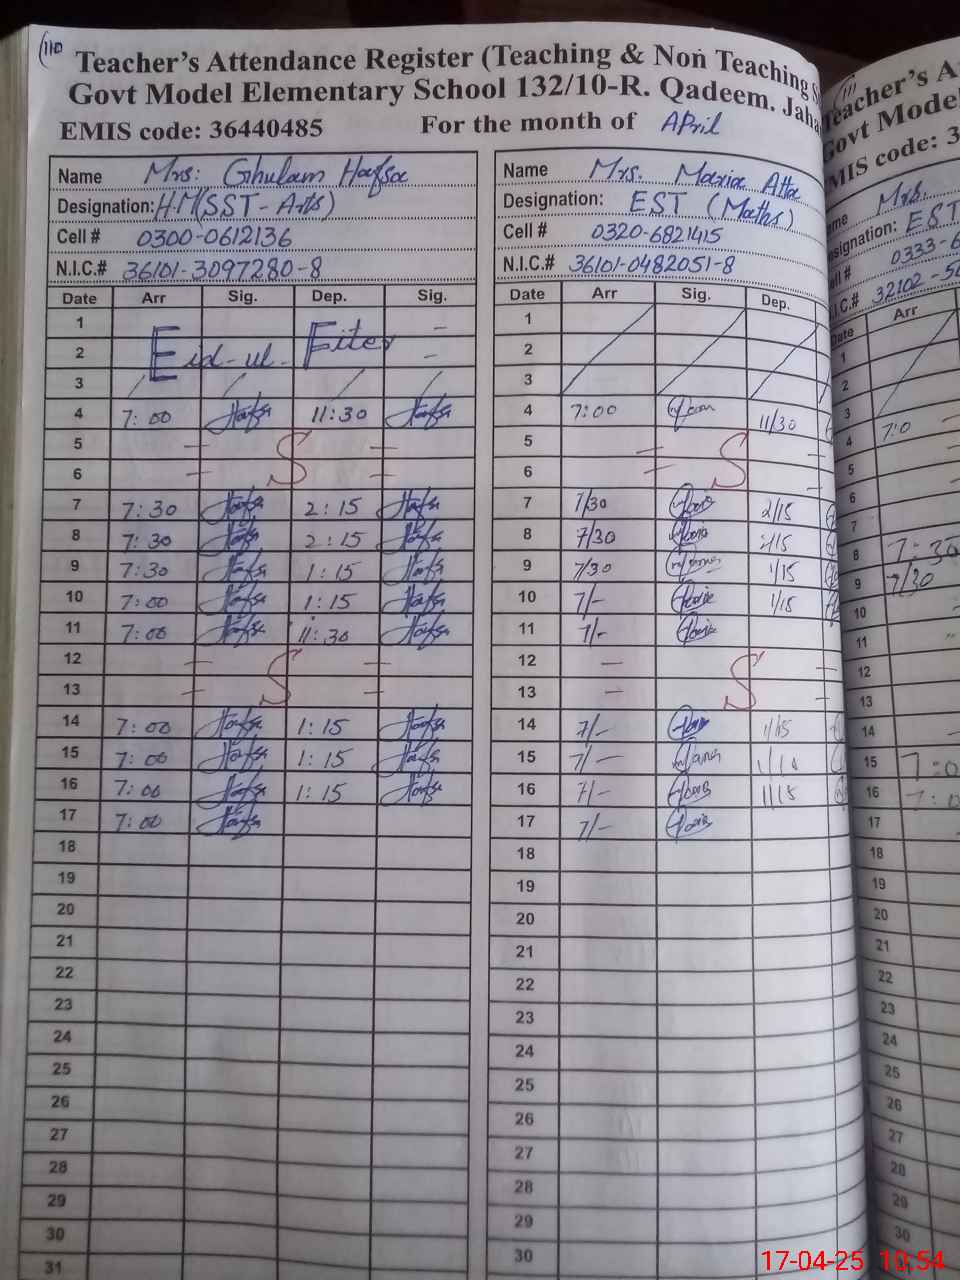 110
Teacher's Attendance Register (Teaching & Non Teaching
Govt Model Elementary School 132/10-R. Qadeem. Jaha
EMIS code: 36440485 For the month of April
Name Mrs: Ghulam Hafsa
Designation: H.M(SST-Arts)
Cell # 0300-0612136
N.I.C.# 36101-3097280-8
Date Arr Sig. Dep. Sig.
1
2 Eid-ul-Fiter
3
4 7:00 Hafsa 11:30 Hafsa
5
6 S
7 7:30 Hafsa 2:15 Hafsa
8 7:30 Hafsa 2:15 Hafsa
9 7:30 Hafsa 1:15 Hafsa
10 7:00 Hafsa 1:15 Hafsa
11 7:00 Hafsa 11:30 Hafsa
12
13 S
14 7:00 Hafsa 1:15 Hafsa
15 7:00 Hafsa 1:15 Hafsa
16 7:00 Hafsa 1:15 Hafsa
17 7:00 Hafsa
18
19
20
21
22
23
24
25
26
27
28
29
30
31
Name Mrs. Maria Atta
Designation: EST (Maths)
Cell # 0320-6821415
N.I.C.# 36101-0482051-8
Date Arr Sig. Dep.
1
2
3
4 7:00 11/30
5
6 S
7 7/30 2/15
8 7/30 2/15
9 7/30 1/15
10 7/- 1/15
11 7/-
12
13 S
14 7/- 1/15
15 7/-
16 7/- 1/15
17 7/-
18
19
20
21
22
23
24
25
26
27
28
29
30
111
eacher's A
Govt Model
MIS code: 3
me Mrs.
esignation: EST
ell # 0333-6
N.I.C.# 32102-50
Date Arr
1
2
3
4 7:0
5
6
7
8 7:30
9 7/30
10
11
12
13
14
15 7:0
16 7:0
17
18
19
20
21
22
23
24
25
26
27
28
29
30
17-04-25 10:54